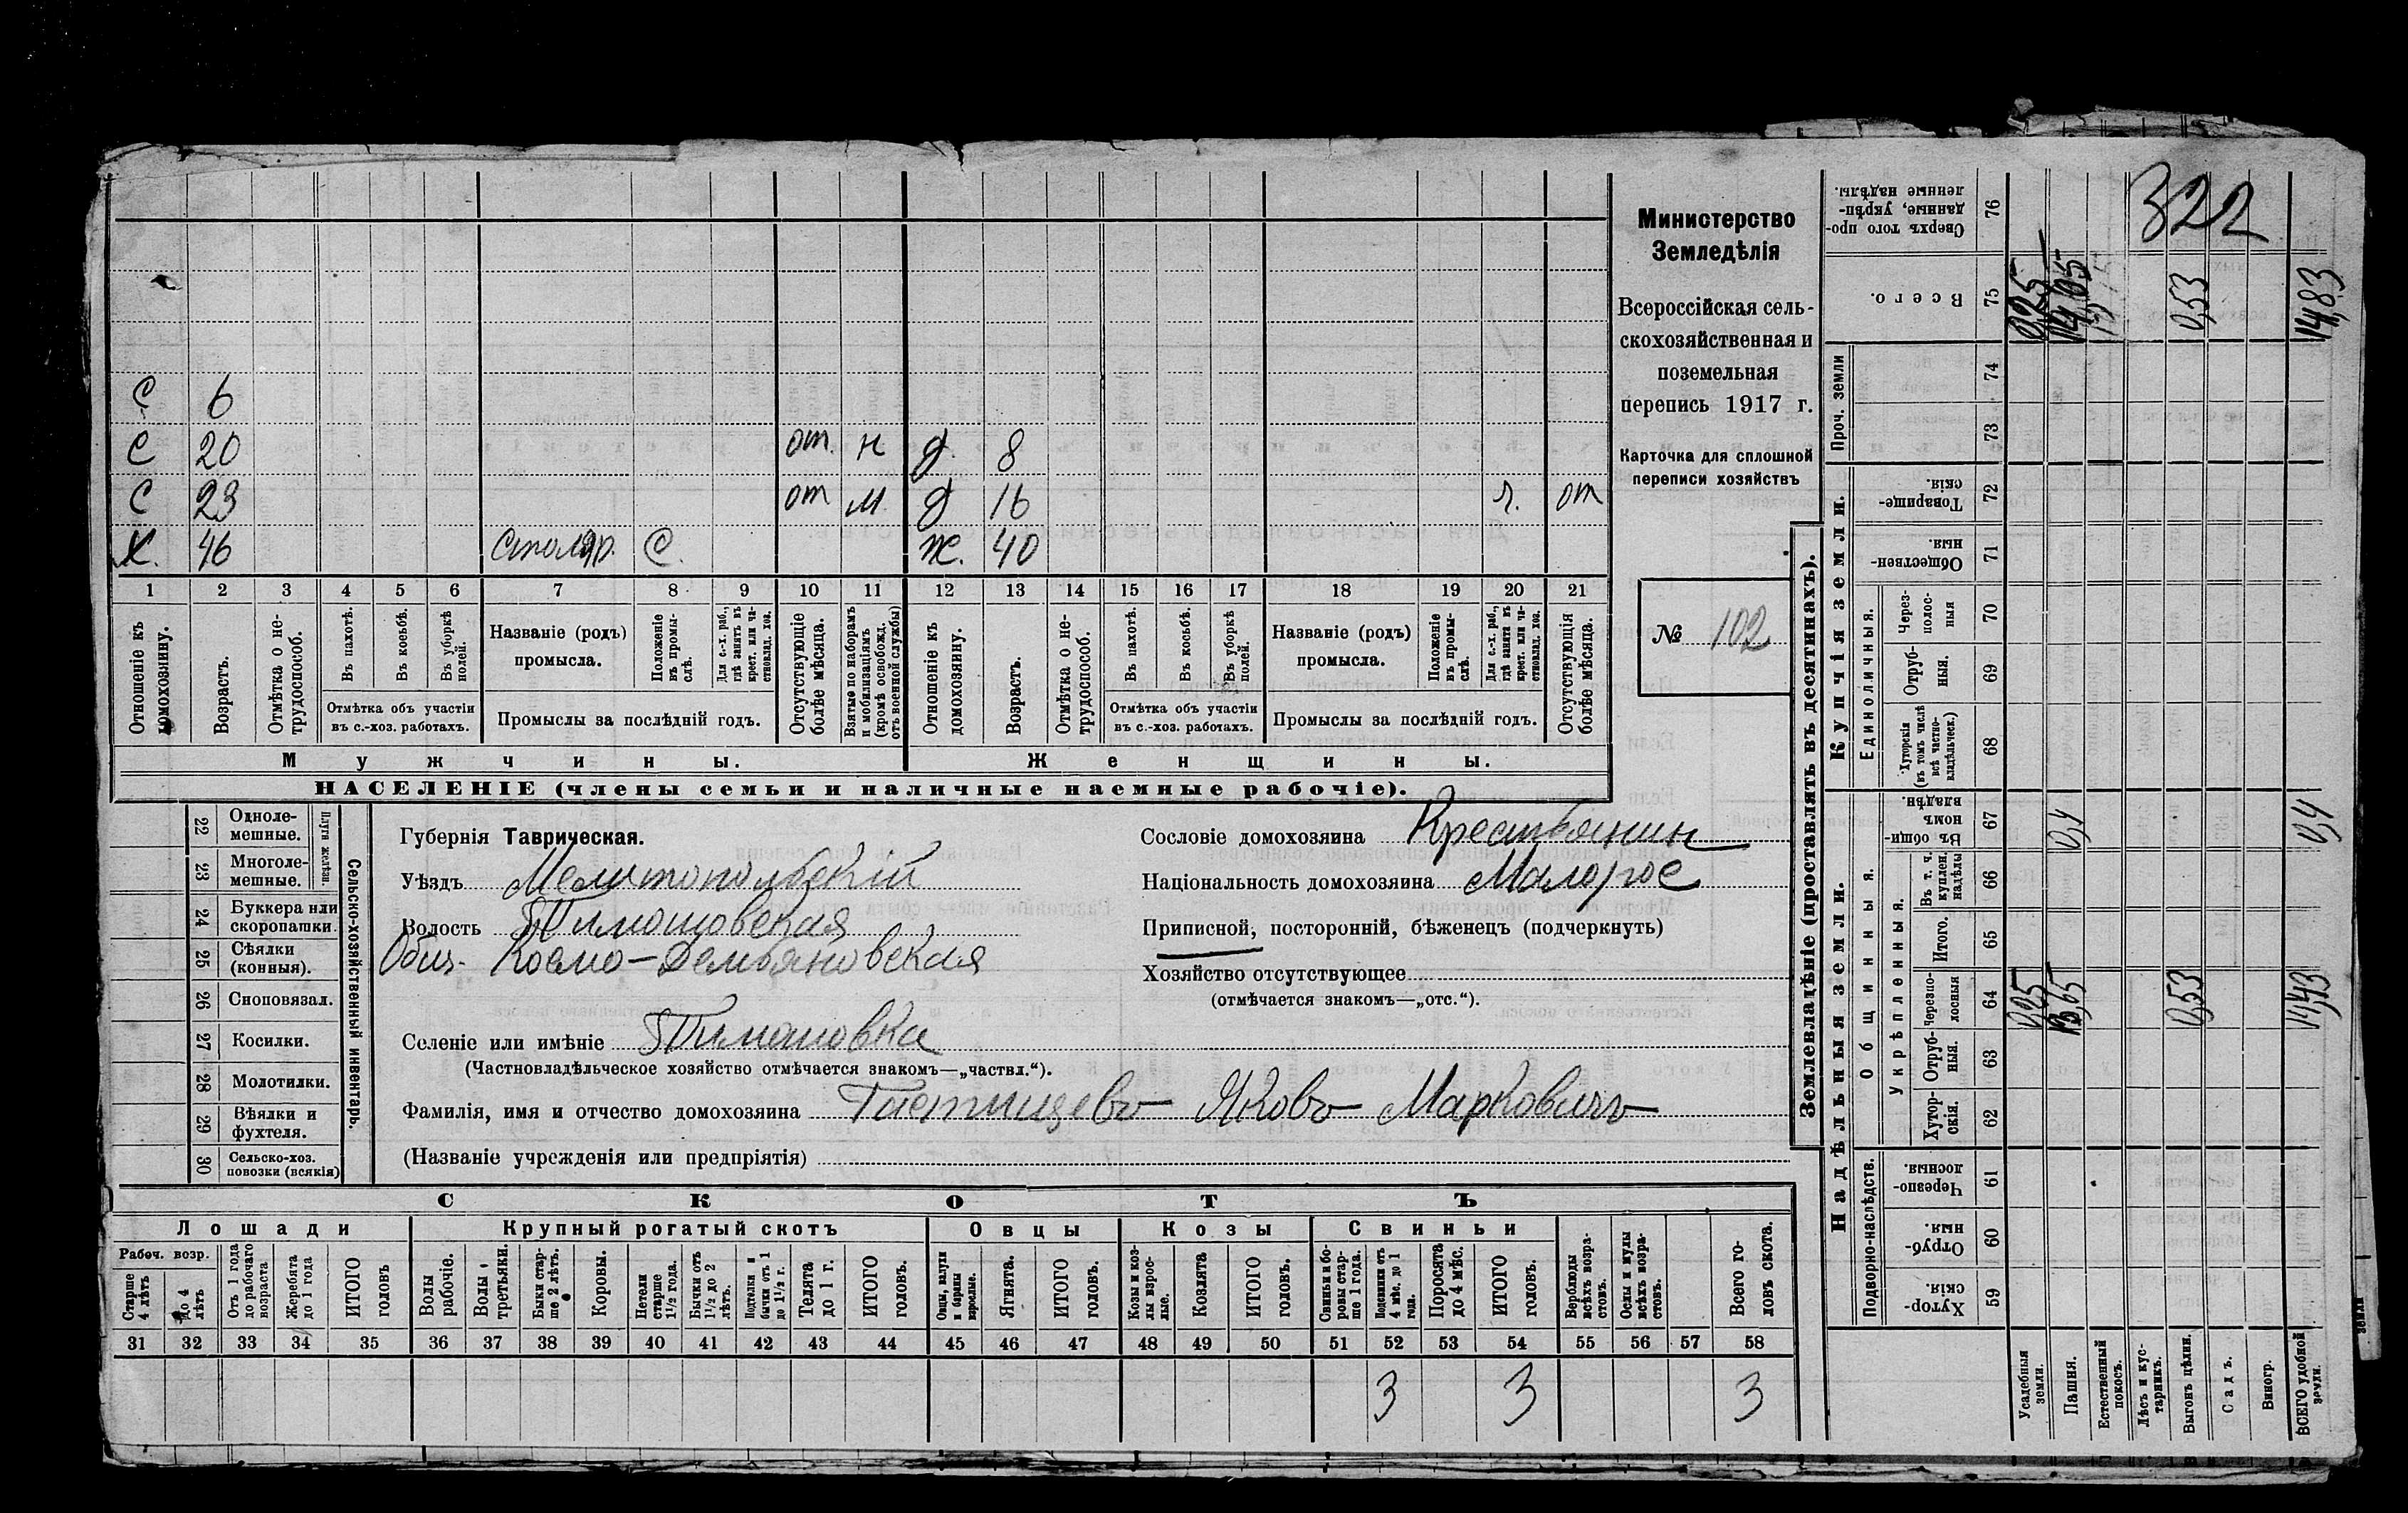 322
Министерство
Земледѣлія
Всероссійская сель-
скохозяйственная и
поземельная
перепись 1917 г.
Карточка для сплошной
переписи хозяйствъ
№ 102
С 6
С 20 от. н д. 8
С 23 от м. д 16 г. от
Х. 46 столяр. С. Ж. 40
1 2 3 4 5 6 7 8 9 10 11 12 13 14 15 16 17 18 19 20 21
Отношеніе къ домохозяину.
Возрастъ.
Отмѣтка о не-
трудоспособ.
Въ пахотѣ.
Въ косьбѣ.
Въ уборкѣ полей.
Отмѣтка объ участіи
въ с.-хоз. работахъ.
Названіе (родъ)
промысла.
Положеніе въ промы-
слѣ.
Для с.-х. раб., гдѣ занятъ въ крест. или ча-
стновлад. хоз.
Промыслы за послѣдній годъ.
Отсутствующіе болѣе мѣсяца.
Взятые по наборамъ и мобилизаціямъ (кромѣ освобожд. отъ военной службы)
Отношеніе къ домохозяину.
Возрастъ.
Отмѣтка о не-
трудоспособ.
Въ пахотѣ.
Въ косьбѣ.
Въ уборкѣ полей.
Отмѣтка объ участіи
въ с.-хоз. работахъ.
Названіе (родъ)
промысла.
Положеніе въ промы-
слѣ.
Для с.-х. раб., гдѣ заняты въ крест. или ча-
стновлад. хоз.
Промыслы за послѣдній годъ.
Отсутствующія болѣе мѣсяца.
Мужчины. Женщины.
НАСЕЛЕНІЕ (члены семьи и наличные наемные рабочіе).
Сельско-хозяйственный инвентарь.
Плуги желѣзн.
22 Одноле-
мешные.
23 Многоле-
мешные.
24 Буккера или
скоропашки.
25 Сѣялки
(конныя).
26 Сноповязал.
27 Косилки.
28 Молотилки.
29 Вѣялки и
фухтеля.
30 Сельско-хоз.
повозки (всякія)
Губернія Таврическая.
Уѣздъ Мелитопольскій
Волость Тимошовская
Общ. Космо-Демьяновская
Селеніе или имѣніе Тимошовка
(Частновладѣльческое хозяйство отмѣчается знакомъ—„частвл.“).
Фамилія, имя и отчество домохозяина Тастищевъ Яковъ Марковичъ
(Названіе учрежденія или предпріятія)
Сословіе домохозяина Крестьянин
Національность домохозяина Малорос
Приписной, посторонній, бѣженецъ (подчеркнуть)
Хозяйство отсутствующее
(отмѣчается знакомъ—„отс.“).
СКОТЪ
Лошади Крупный рогатый скотъ Овцы Козы Свиньи
Рабоч. возр.
Старше 4 лѣтъ
до 4 лѣтъ
Отъ 1 года до рабочаго возраста
Жеребята до 1 года
ИТОГО головъ
Волы рабочіе.
Волы третьяки.
Быки стар-
ше 2 лѣтъ.
Коровы.
Нетели старше 1½ года.
Бычки отъ 1½ до 2 лѣтъ.
Подтелки и бычки отъ 1 до 1½ г.
Телята до 1 г.
ИТОГО головъ.
Овцы, валухи и бараны взрослые.
Ягнята.
ИТОГО головъ.
Козы и коз-
лы взрос-
лые.
Козлята
ИТОГО головъ.
Свиньи и бо-
ровы стар-
ше 1 года.
Подсвинки отъ 4 мѣс. до 1 года.
Поросята до 4 мѣс.
ИТОГО головъ.
Верблюды всѣхъ возра-
стовъ.
Ослы и мулы всѣхъ возра-
стовъ.
Всего го-
ловъ скота.
31 32 33 34 35 36 37 38 39 40 41 42 43 44 45 46 47 48 49 50 51 52 53 54 55 56 57 58
3 3 3
Землевладѣніе (проставлять въ десятинахъ).
Сверхъ того про-
данные, укрѣп-
ленные надѣлы. 76
Всего. 75 0,25 14,05 0,53 14,83
Проч. земли 74
73
Купчія земли.
Товарище-
скія. 72
Обществен-
ныя. 71
Единоличныя.
Через-
полос-
ныя 70
Отруб-
ныя. 69
Хуторскія
(въ томъ числѣ
всѣ частно-
владѣльческ.) 68
Надѣльныя земли.
Общинныя.
Въ общи-
номъ
владѣн. 67 0,4 0,4
Укрѣпленныя.
Въ т. ч.
куплен.
надѣлы 66
Итого. 65
Черезпо-
лосныя 64 0,25 13,65 0,53 14,43
Отруб-
ныя. 63
Хутор-
скія. 62
Подворно-наслѣдств.
Черезпо-
лосныя. 61
Отруб-
ныя. 60
Хутор-
скія. 59
Усадебныя земли.
Пашня.
Естественный покосъ.
Лѣсъ и кус-
тарникъ.
Выгонъ цѣлин.
Садъ.
Виногр.
ВСЕГО удобной земли.